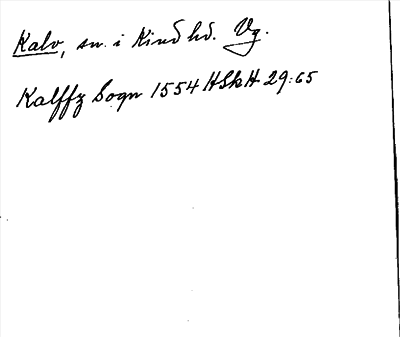 Kalv, sn. i Kind hd. Vg.
Kalffz Sogn 1554 HSkH 29:65